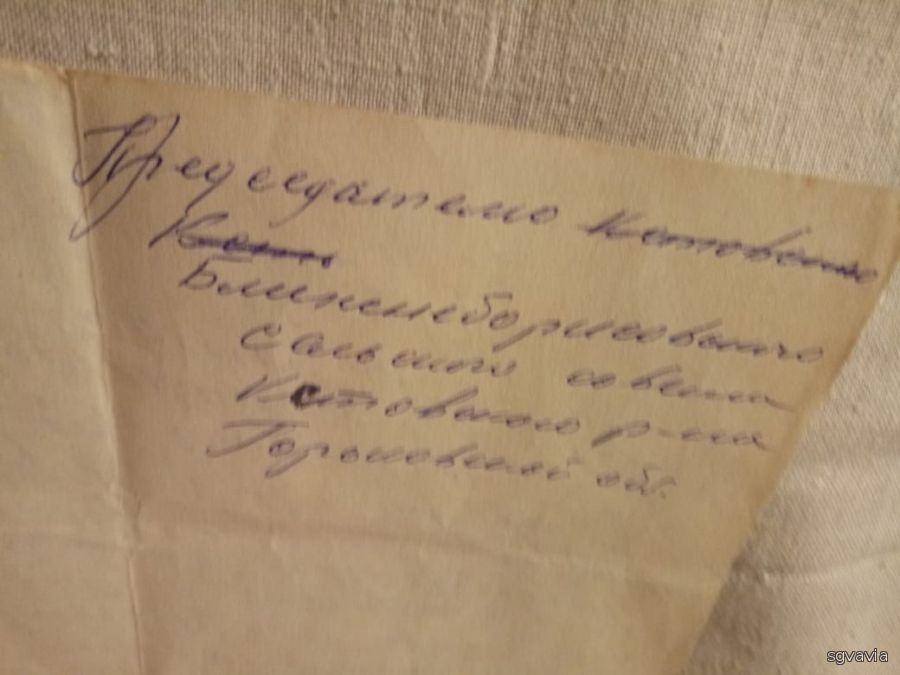 Председателю Кстовского
Кст
Ближнеборисовского
сельского совета
Кстовского р-на
Горьковской обл.
sgvavia